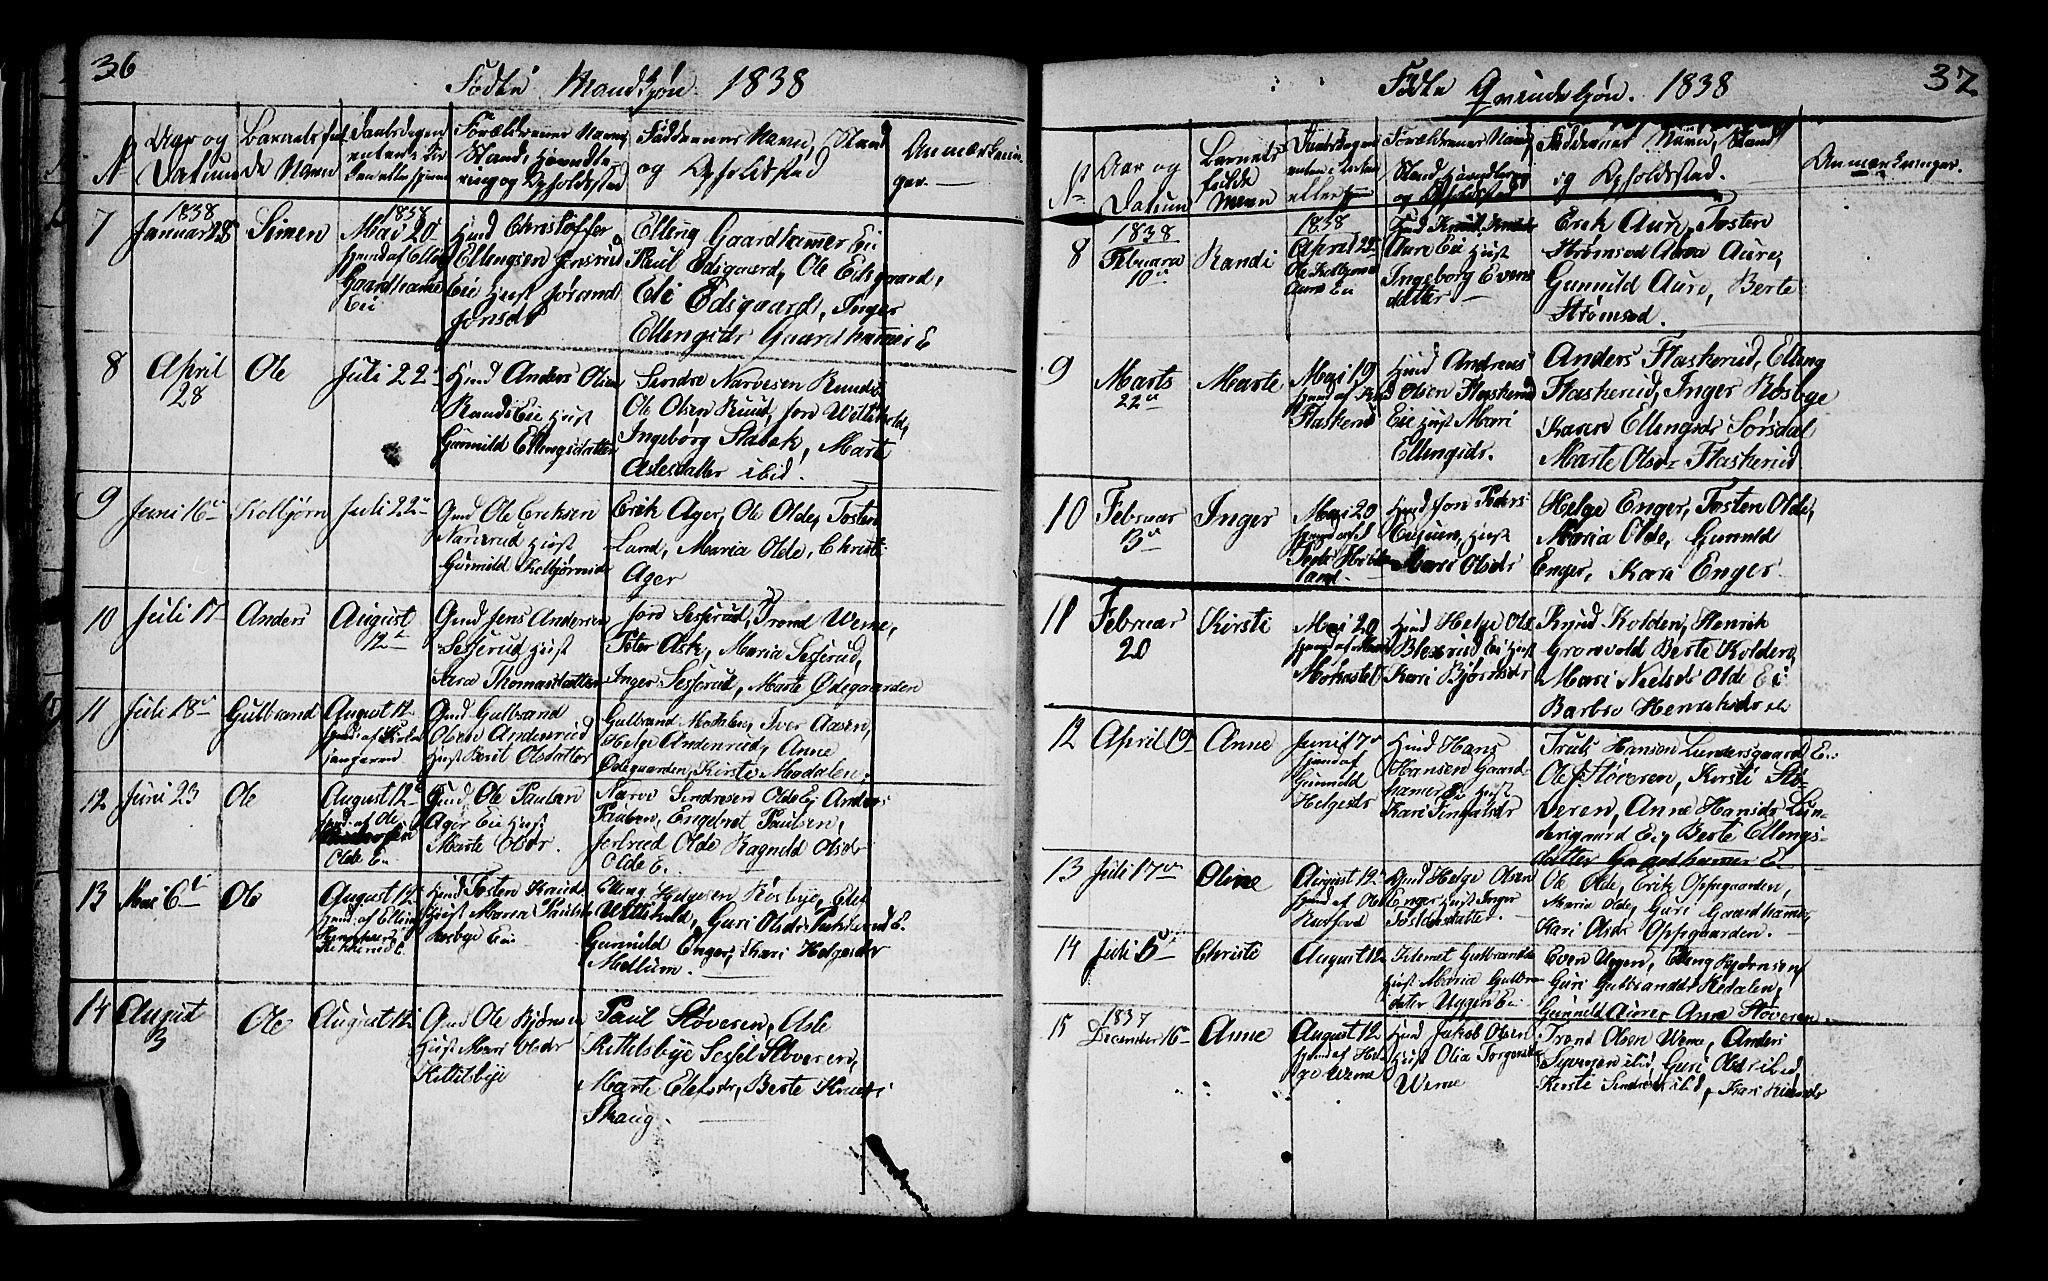 36
Födte Mandkjön 1838
No
Aar og
Datum
Barnets ful
de Navn
Daabsdagen
Forældrenes Navne,
Stand, Haandte-
ring og Opholdssted
Faddernes Navn, Stand
og Opholdssted
Anmærknin
ger.
7
1838
Januar 28
Simen
1838
Mai 20
hjemd af Elling
Gaardhamer
Eie
Huusd Christoffer
Ellingsen Jonsrud
Eie Hust Jørand
Jonsdr
Elling Gaardhamer Eie
Paul Edsgaard, Ole Edsgaard,
Eli Edsgaard, Inger
Ellengsdr Gaardhamer E
8
April
28
Ole
Juli 22
Anders Olsen
Ruuds Eie Hust
Gunnild Ellengsdatter
Sendre Narvesen Ruuds
Ole Olsen Ruud, Jon Wittekold,
Ingeborg Slabak, Marte
Aslesdatter ibid.
9
Juni 16
Kolbjørn
Juli 22
Gmd Ole Eriksen
Narverud Hust
Gunnild Kolbjørnsdr
Erik Ager, Ole Olde, Tosten
Land, Maria Olde, Christi
Ager
10
Juli 17
Anders
August
12
Gmd Jens Andersen
Sesserud Hust
Sara Thomasdatter
Jon Sesserud, Trond Werne,
Peter Ask, Maria Sesserud,
Inger Sesserud, Marte Ødegaarden
11
Juli 18
Gulbrand
August 12
hjemd af Kirke
sangeren
Gmd Gulbrand
Olsen Andenrud
Hust Berit Olsdatter
Gulbrand Modalen, Iver Aasen,
Helge Andenrud, Anne
Ødegaarden, Kirsti Modalen.
12
Juni 23
Ole
August 12
hjemd af Ole
Olde Ei
Gmd Ole Paulsen
Ager Eie Hust
Marte Olsdr.
Narve Sendresen Olde Ei, Anders
Paulsen, Engebret Paulsen,
Olde Ragnild Olsdr
Olde E.
13
Mai 6
Ole
August 12
hjemd af Elling
Tosten Knuds
Hust Maria Paulsd
Rosbye Ei
Elling Helgesen Rosbye, Elef
Wittekold, Guri Olsdr E.
Gunnild Enger, Kari Helgesdr
Medlum.
14
August
3
Ole
August 12
Gmd Ole Bjørnsen
Hust Mari Olsdr
Kittelsbye
Paul Støveren, Asle
Kittelsbye Sessel Støveren,
Marte Elefsdr, Berte Knuds
Skaug.
37
Födte Qvindekjön. 1838
No
Aar og
Datum
Barnets
fulde
Navn
Daabsdagen
enten i Kirken
eller
Forældrenes Navne,
Stand Haandtering
og Opholdssted
Faddernes Navn, Stand
og Opholdssted.
Anmærkninger.
8
1838
Februar
10
Randi
1838
April 22
Ole Kolbjørns
Aure Ei
Aure Eie Hust
Ingeborg Evens
datter
Erik Aure, Tosten
Strømsod Anna Aure,
Gunnild Aure, Berte
Strømsod.
9
Marts
22
Marte
Mai 19
Flaskerud
Huusd Andreas
Olsen Flaskerud
Eie Hust Mari
Ellengsdr.
Anders Flaskerud, Elling
Flaskerud, Inger Rosbye
Karen Ellengsdr Sørsdal
Marte Olsdr Flaskerud
10
Februar
13
Inger
Mai 20
land
Jon Peders
Hust
Mari Olsdr
Helge Enger, Tosten Olde,
Maria Olde, Gunnild
Enger, Kari Enger
11
Februar
20
Kirsti
Mai 20
Mokastet
Huusd Helge Ols
Blexrud Ei Hust
Kari Bjørnsdr
Knud Kolden, Henrik
Gronvold Berte Kolden,
Mari Nielsdr Olde Ei
Barbro Henriksdr
12
April 19
Anne
Juni 17
hjemd af
Gunnild
Helgesdr
Huusd Hans
Hansen Gaard-
hamer Ei Hust
Kari Fingalsdr
Truls Hanson Lundersgaard Ei
Ole J. Støveren, Kirsti Stø-
veren, Anne Hansdr Lun-
dersgaard Ei, Berte Ellengs-
datter Gaardhamer E.
13
Juli 17
Oline
August 12
hjemd af Ole
Gmd Helge Olsen
Enger Hust Inger
Tostensdatter.
Ole Olde, Erik Oppegaarden,
Maria Olde, Guri Gaardhamer,
Kari Olsdr Oppegaarden.
14
Juli 5
Christi
August 12
Klemet Gulbrands
Hust Maria Gulbr-
datter Uggen Ei
Even Uggen, Elling Bjørnsen,
Guri Gulbrandsdr Medalen,
Gunnild Aure, Anne Støveren
15
1837
December 16
Anne
August 12
hjemd af Hel-
ge Werne
Huusd Jakob Olsen
Hust Olia Torgersdr
Werne
Trond Olsen Werne, Anders
Syversen ibid, Guri Olsdr ibid,
Kirsti Sindre ibid, Kari Knudsdr